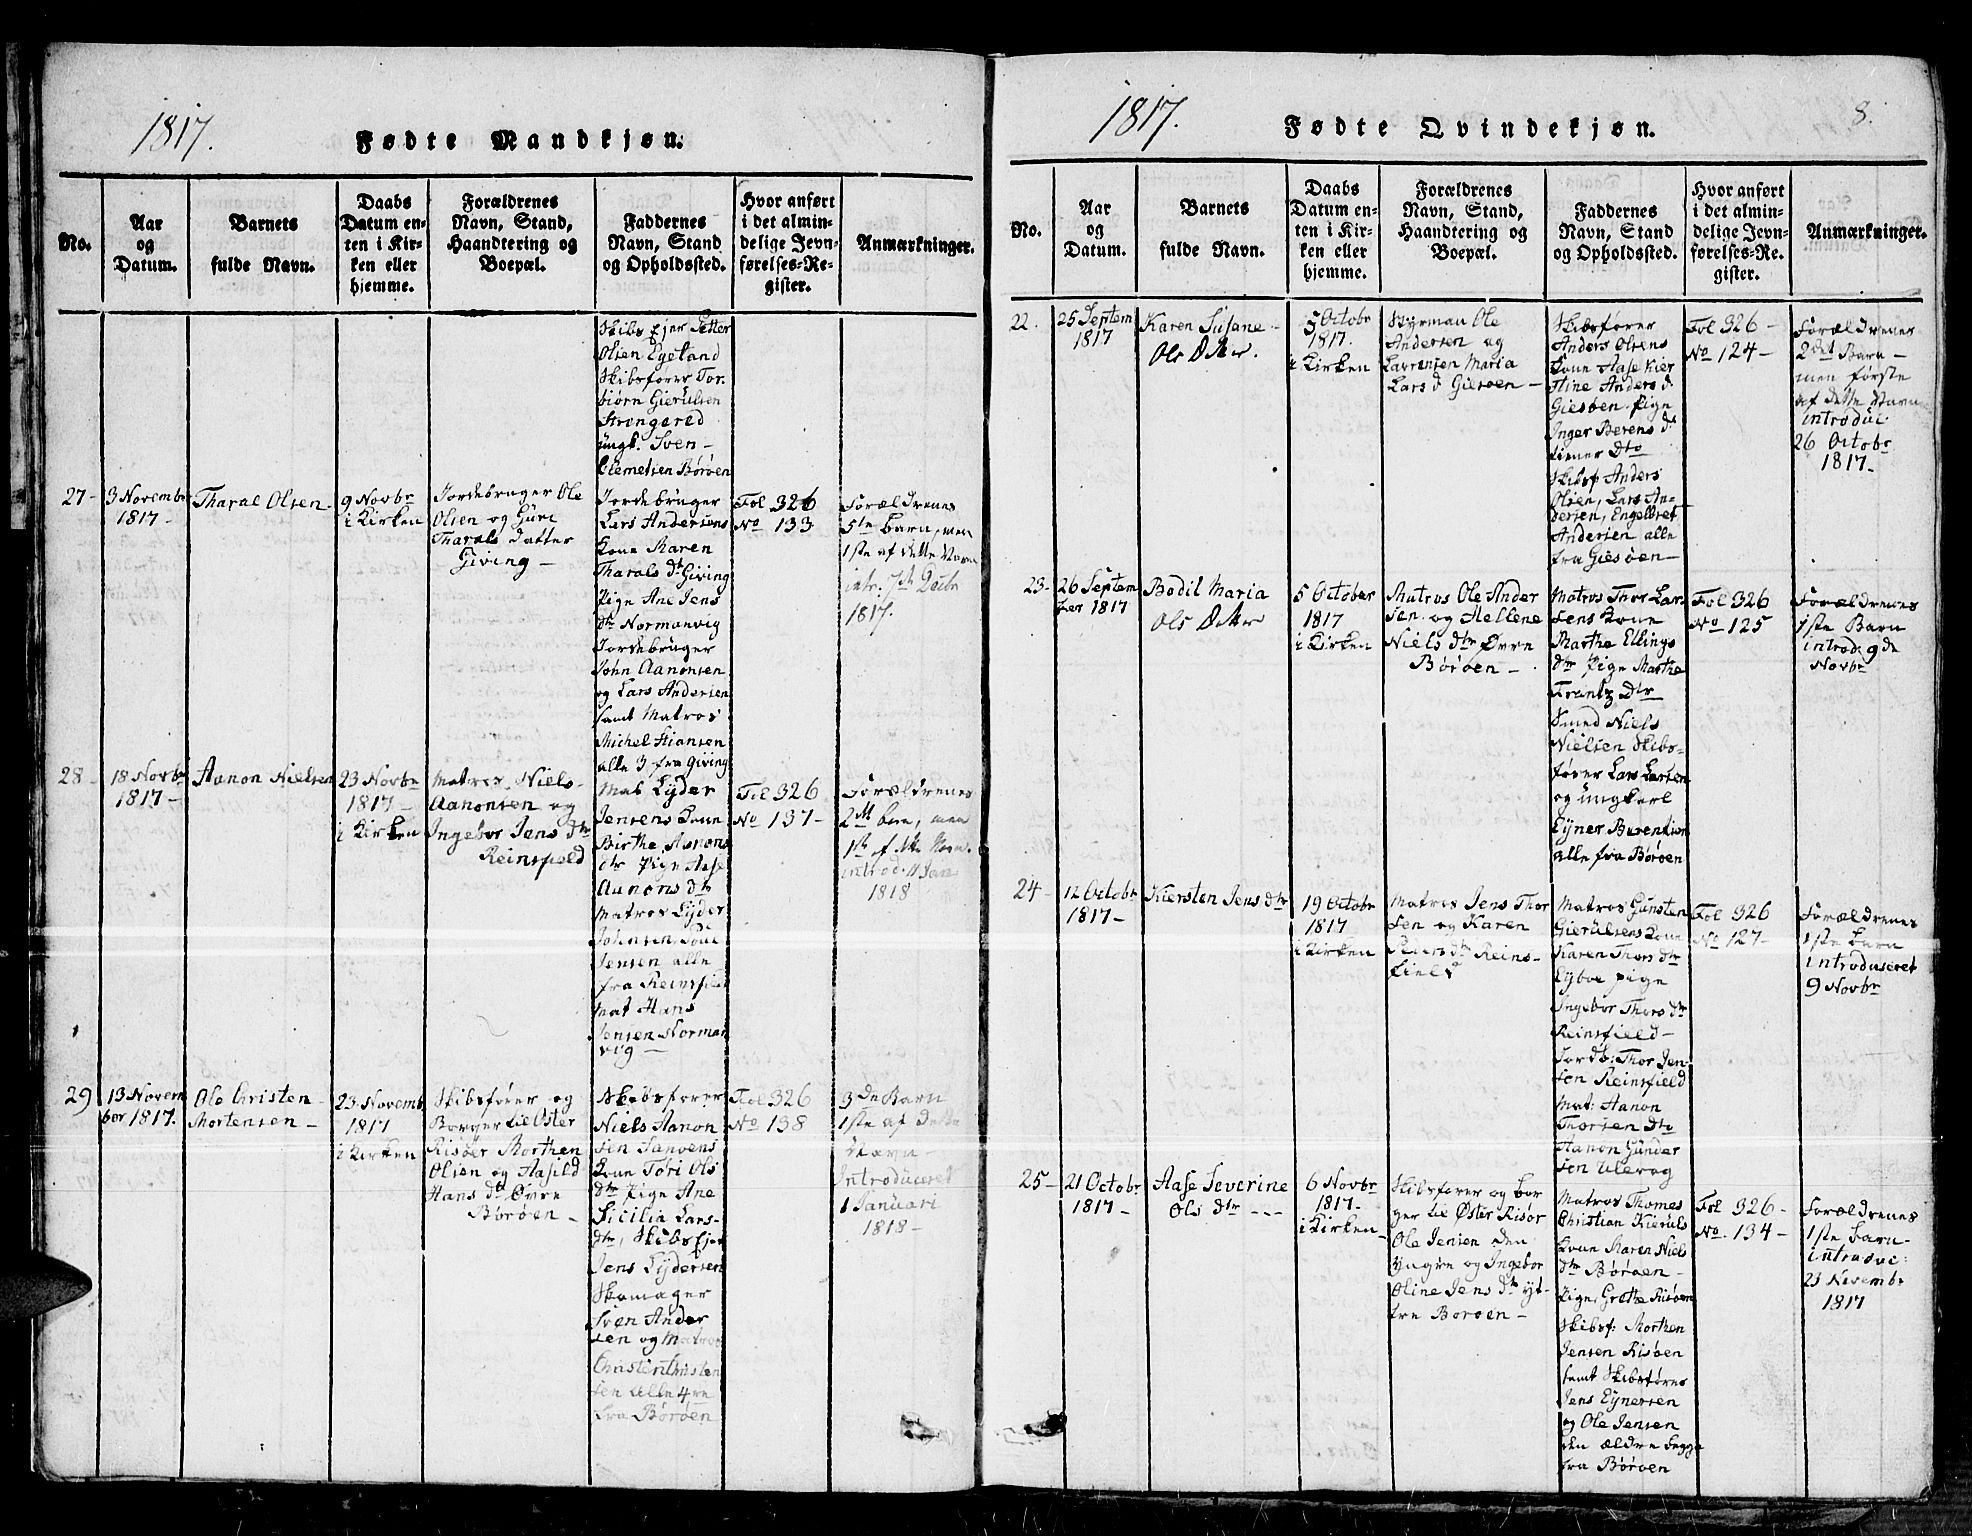 1817.
Fødte Mandkjøn.
No.
Aar
og
Datum.
Barnets
fulde Navn.
Daabs
Datum en-
ten i Kir-
ken eller
hjemme.
Forældrenes
Navn, Stand,
Haandtering og
Boepæl.
Faddernes
Navn, Stand
og Opholdssted.
Hvor anført
i det almin-
delige Jevn-
førelses-Re-
gister.
Anmærkninger.
Skibs Ejer Petter
Olsen Egeland
Skibsfører Tor-
biørn Gierulsen
Strengered
ungk. Sven
Clemetsen Børøen
27-
3 Novembr
1817-
Tharal Olsen
9 Novbr
i Kirken
Jordebruger Ole
Olsen og Guri
Tharals Datter
Giving-
Jordebruger
Lars Andersens
Kone Maren
Tharals dtr Giving
Pige Ane Jens
dtr Normanvig
Jordebruger
John Aanonsen
og Lars Andersen
samt Matros
Michel Stiansen
alle 3 fra Giving
Fol 326
No 133
Forældrenes
5te Barn, men
1ste af dette Navn
intr: 7de Decbr
1817.
28-
18 Novbr
1817-
Aanon Nielsen
23 Novbr
1817-
i Kirken
Matros Niels
Aanonsen og
Ingebor Jens dtr
Reinsfield
Mat Lyder
Jensens Kone
Birthe Aanons
dtr Pige Aase
Aanons dtr
Matros Lyder
Johnsen, Poul
Jensen alle
fra Reinsfield
Mat Hans
Jensen Norman
vig-
Fol 326
No 137-
Forældrenes
2det barn, men
1ste af dette Navn.
introd: 11 Jan
1818
29
13 Novem
ber 1817.
Ole Christen
Mortensen-
23 Novemb
1817
i Kirken
Skibsfører og
Borger til Øster
Risøer Morthen
Olsen og Aasild
Hans dtr Øvre
Børøen-
Skibsfører
Niels Aanon
sen Sanøens
Kone Tøri Ols
dtr Pige Ane
Sicilia Lars-
dtr, Skibs Ejer
Jens Lydersen
Skomager
Sven Ander
sen og Matros
Christen Christen
sen alle 4re
fra Børøen
Fol 326
No 138
3de Barn
1ste af dette
Navn-
Introduceret
1 Januari
1818-
1817.
Fødte Qvindekjøn.
8.
No.
Aar
og
Datum.
Barnets
fulde Navn.
Daabs
Datum en-
ten i Kir-
ken eller
hjemme.
Forældrenes
Navn, Stand,
Haandtering og
Boepæl.
Faddernes
Navn, Stand
og Opholdssted.
Hvor anført
i det almin-
delige Jevn-
førelses-Re-
gister.
Anmærkninger.
22.
25 Septem
1817
Karen Susane
Ols Dtter.
5 Octobr
1817.
i Kirken
Styrman Ole
Andersen og
Laurensen Maria
Lars d Giesøen-
Skibsfører
Anders Olsens
Kone Aase Kier
stine Anders d
Giesøen. Pige
Inger Berens d
tiener Dto
Skibsf Anders
Olsen, Lars An-
dersen, Engelbret
Andersen alle
fra Giesøen-
Fol 326-
No 124-
Forældrenes
2det Barn-
men første
af dette Navn
introdui:
26 Octobr
1817-
23-
26 Septem
ber 1817
Bodil Maria
Ols Dtter
5 October
1817
i Kirken
Matros Ole Ander
sen og Hellene
Niels dtr Øvre
Børøen-
Matros Thor Lar-
sens Kone
Marthe Ellings
dtr Pige Marthe
Frantz Dtr
Smed Niels
Nielsen Skibs-
fører Lars Larsen
og ungkarl
Ejner Barentsen
alle fra Børøen
Fol 326
No 125
Forældrenes
1ste Barn
introd: 9de
Novbr
24-
12 Octobr
1817-
Kiersten Jens dtr
19 Octobr
1817
i Kirken
Matros Jens Thor
sen og Karen
Peders dtr Reins-
field
Matros Gunsten
Gierulsens Kone
Karen Thors dtr
Lybye pige
Ingebor Thors dtr
Reinsfield-
Jordb: Thor Jen-
sen Reinsfield
Mat: Aanon
Thorsen dto
Aanon Gunder
sen Ulevog
Fol 326
No 127-
Forældrenes
1ste barn
introduseret
9 Novbr
25-
21 Octobr
1817-
Aase Severine
Ols dtr ---
6 Novbr
1817-
i Kirken-
Skibsfører og bor
ger til Øster Risør
Ole Jensen den
yngre og Ingebor
Oline Jens dtr yt-
tre Børøen-
Matros Thomes
Christian Kieruls
Kone Maren Niels
dtr Børøen-
Pige, Grethe Risøen
Skibsf: Morthen
Jensen Risøen
samt Skibsføres
Jens Ejnersen
og Ole Jensen
den ældre begge
fra Børøen
Fol 326-
No 134-
Forældrenes
1ste barn-
introdui:
23 Novembr
1817